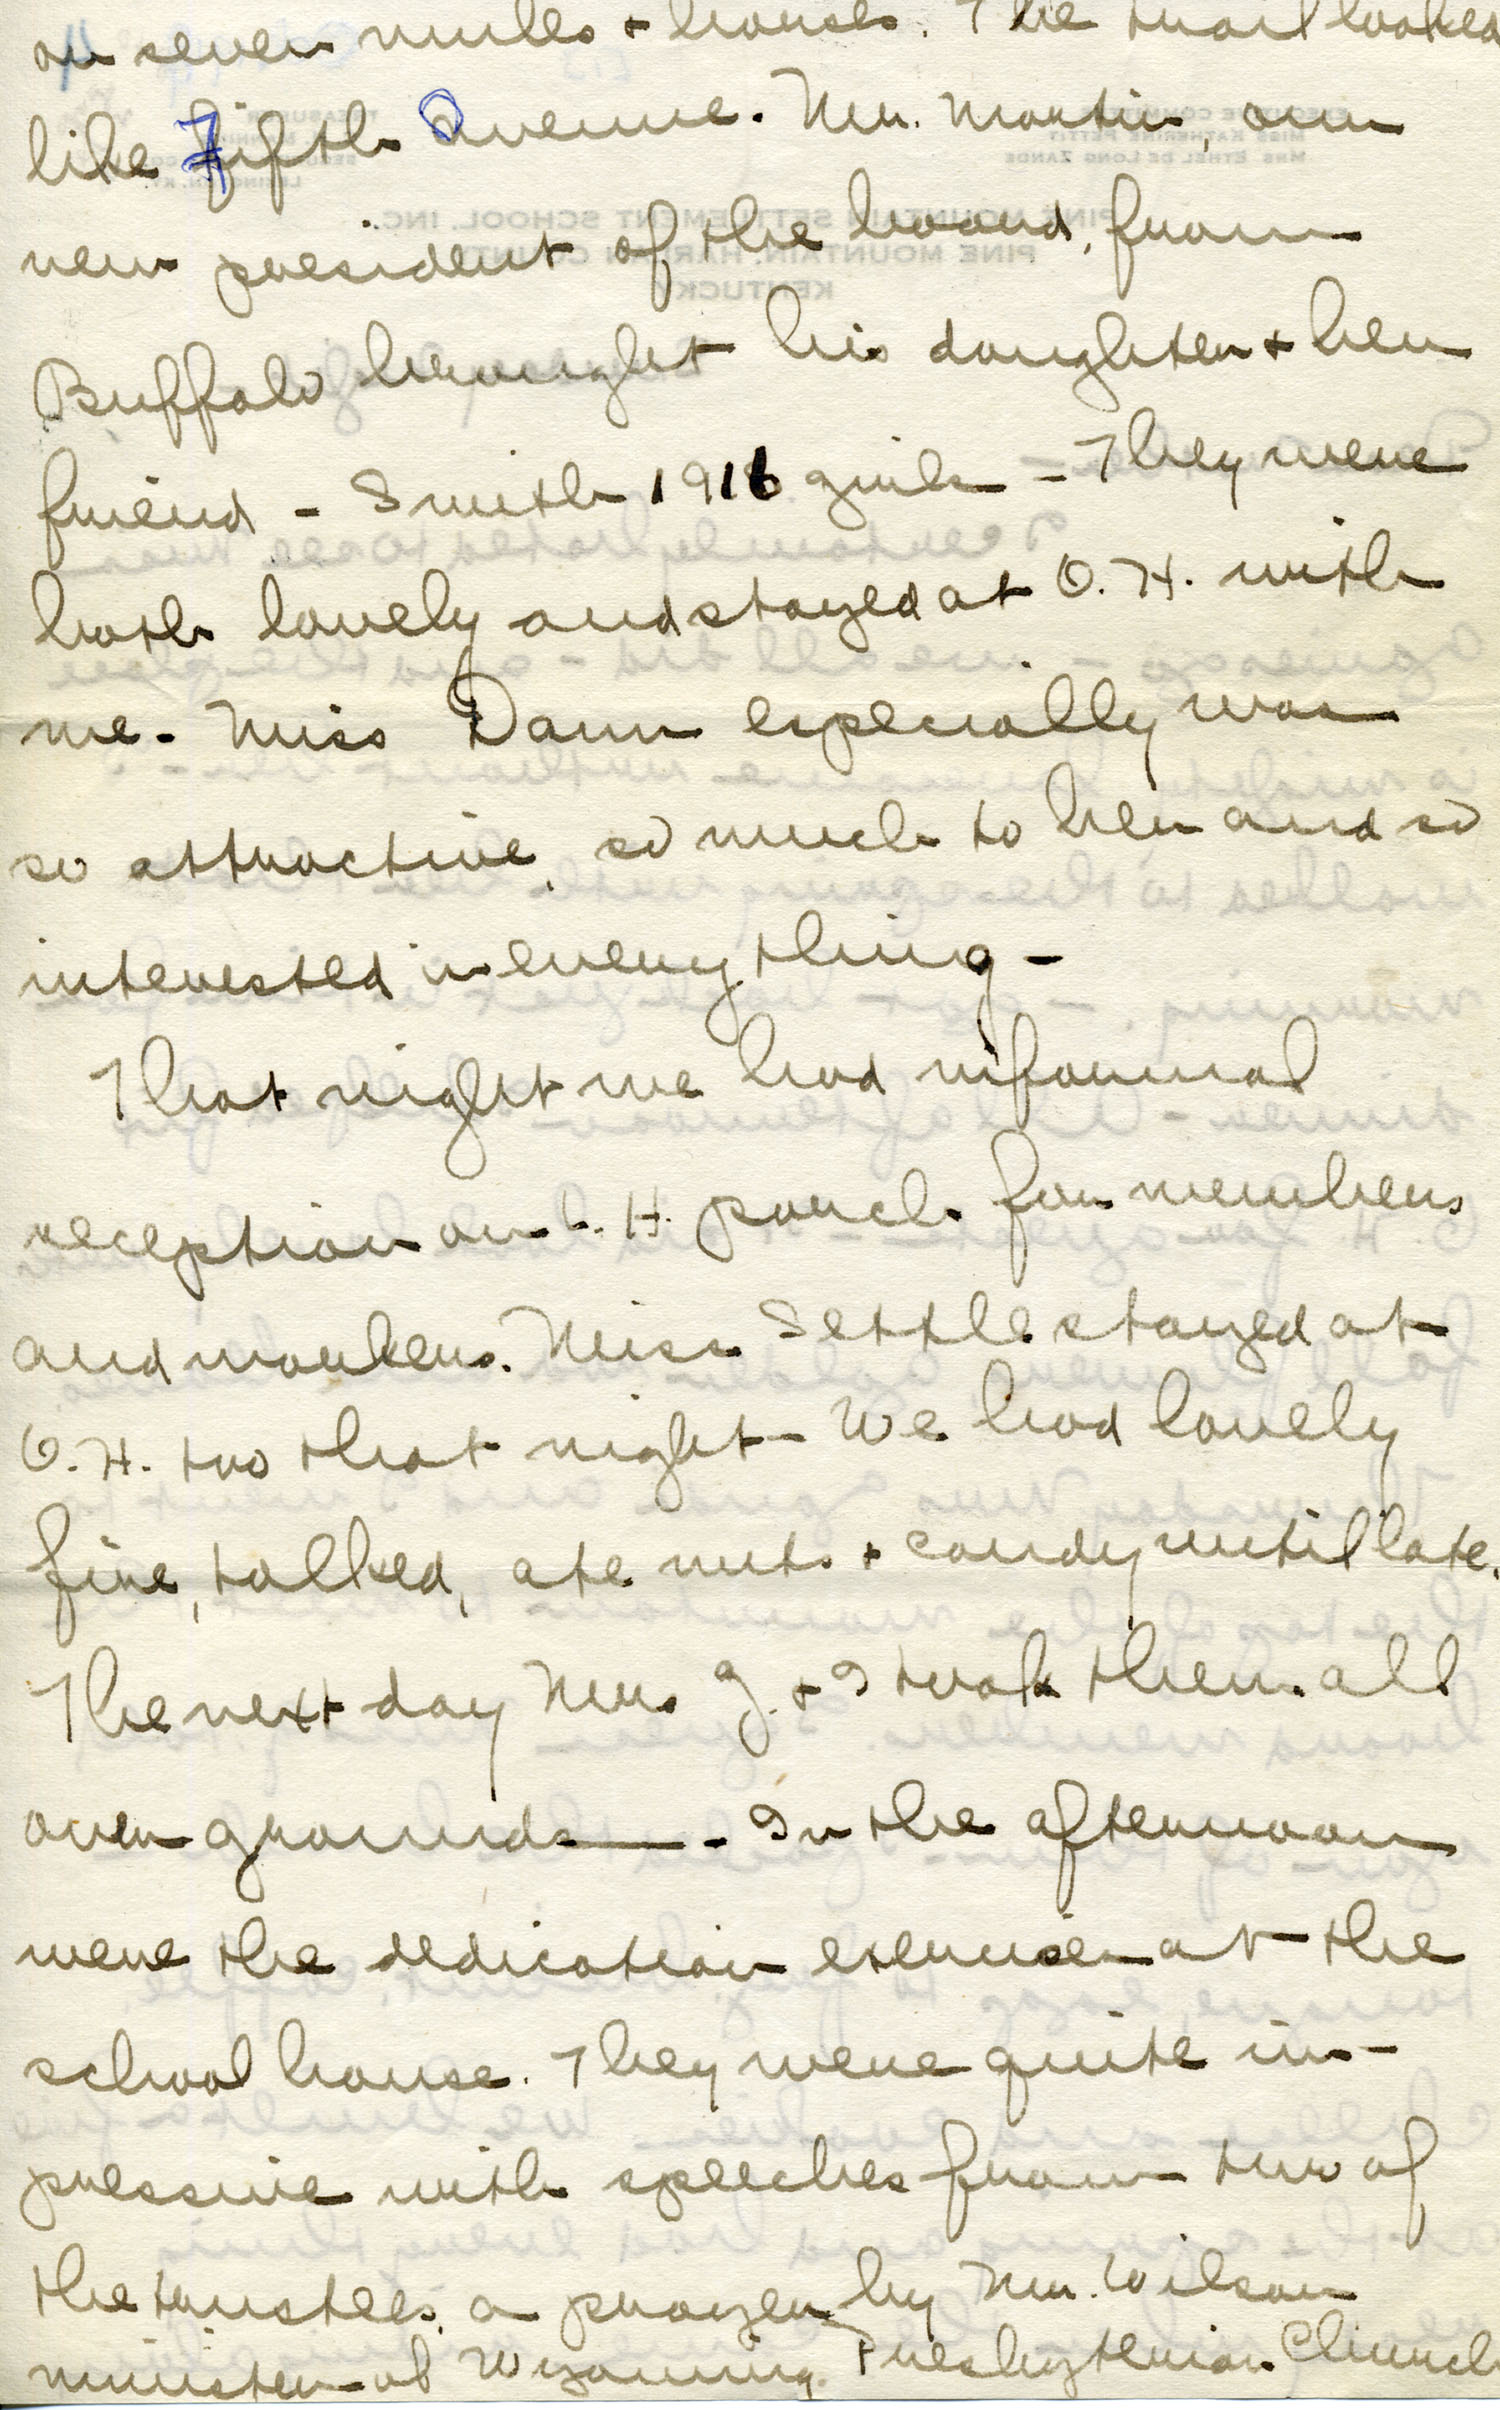 on seven mules + horses. The trail looked
like Fifth Avenue. Mr. Martin, our
new president of the board, from
Buffalo brought his daughter + her
friend - Smith 1916 girls - They were
both lovely and stayed at O. H. with
me. Miss Dann especially was
so attractive, so much to her and so
interested in everything -
That night we had informal
reception on L. H. porch for members
and workers. Miss Settle stayed at
O. H. too that night - We had lovely
fire, talked, ate nuts + candy until late.
The next day Mrs Z. + I took them all
over grounds - In the afternoon
were the dedication exercises at the
school house. They were quite im-
pressive with speeches from two of
the trustees, a prayer by Mr. Wilson
minister of Wyoming Presbyterian Church
EXECUTIVE COMMITTEE
MISS KATHERINE PETTIT
MRS ETHEL DE LONG ZANDE
TREASURER
PINE MOUNTAIN SETTLEMENT SCHOOL INC.
PINE MOUNTAIN, HARLAN COUNTY
KENTUCKY